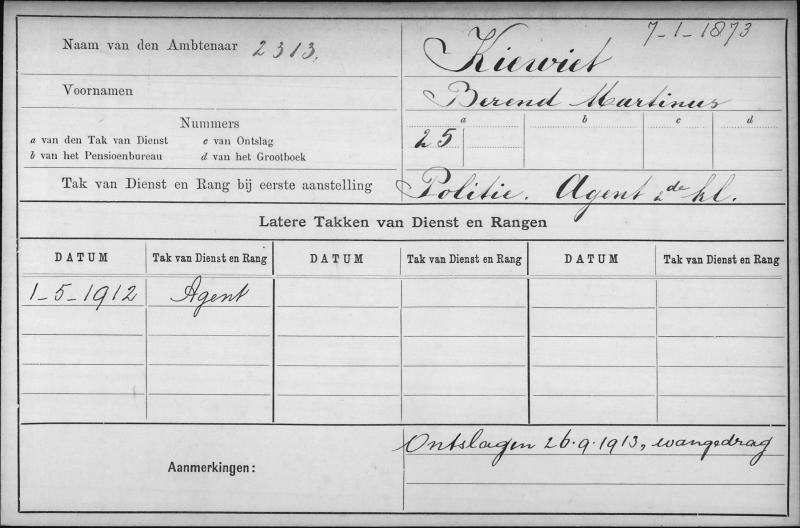 7-1-1873
Naam van den Ambtenaar 2313. Kiewiet
Voornamen Berend Martinus
Nummers
a b c d
a van den Tak van Dienst c van Ontslag
25
b van het Pensioenbureau d van het Grootboek
Tak van Dienst en Rang bij eerste aanstelling Politie. Agent 2de kl.
Latere Takken van Dienst en Rangen
DATUM Tak van Dienst en Rang DATUM Tak van Dienst en Rang DATUM Tak van Dienst en Rang
1-5-1912 Agent
Ontslagen 26.9.1913, wangedrag
Aanmerkingen: